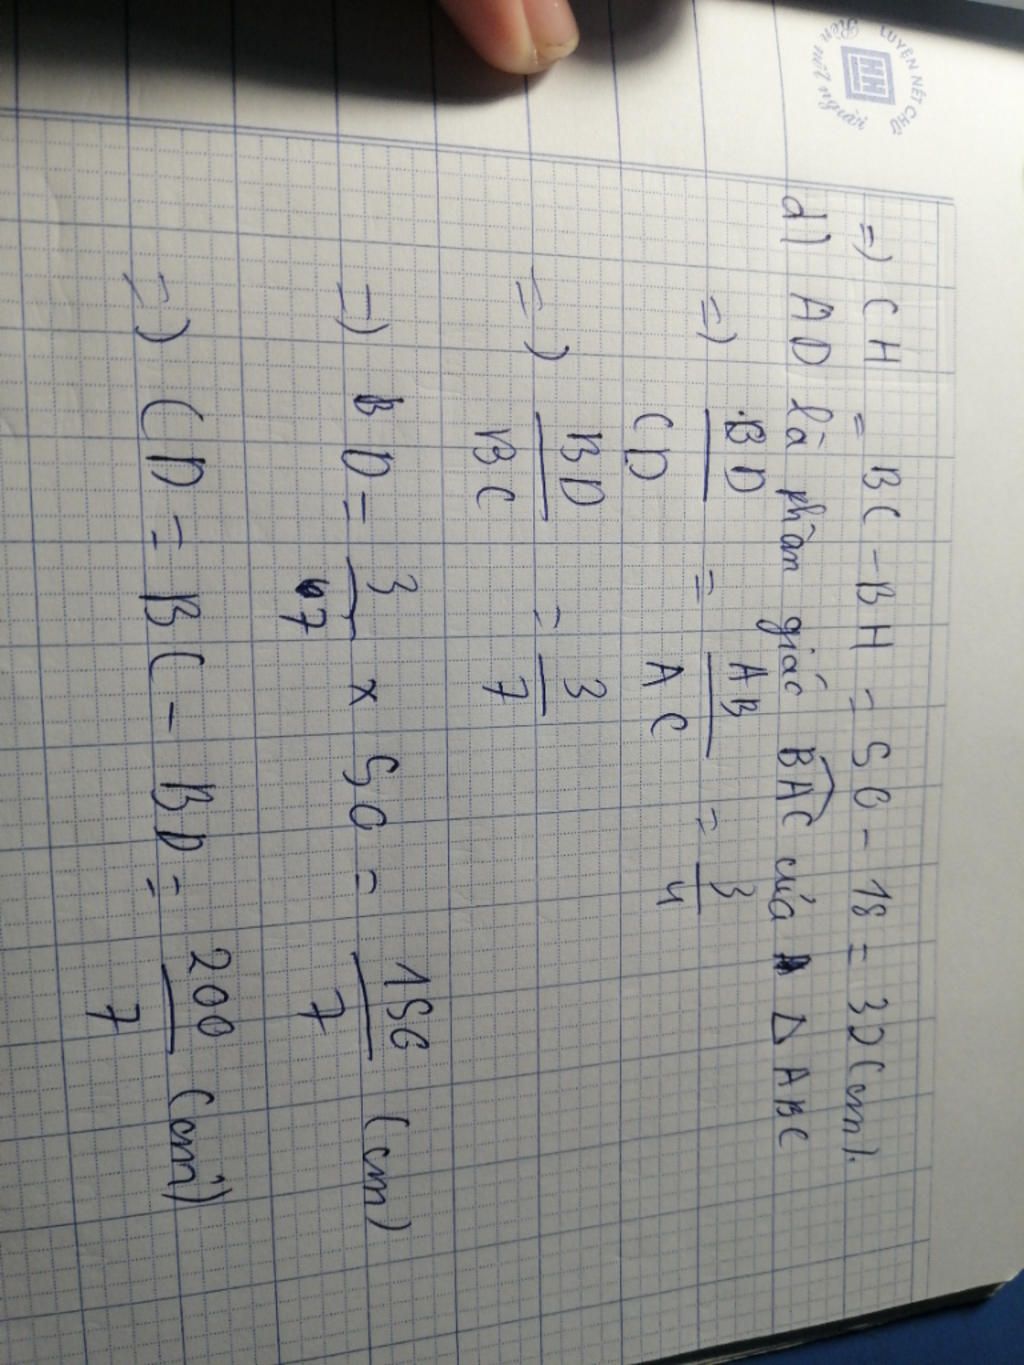 LUYỆN NÉT CHỮ
Rèn nết người
=) CH = BC - BH = 50 - 18 = 32 (cm).
d) AD là phân giác BAC của Δ ABC
=) BD/CD = AB/AC = 3/4
=) BD/BC = 3/7
=) BD = 3/7 x 50 = 150/7 (cm)
=) CD = BC - BD = 200/7 (cm)